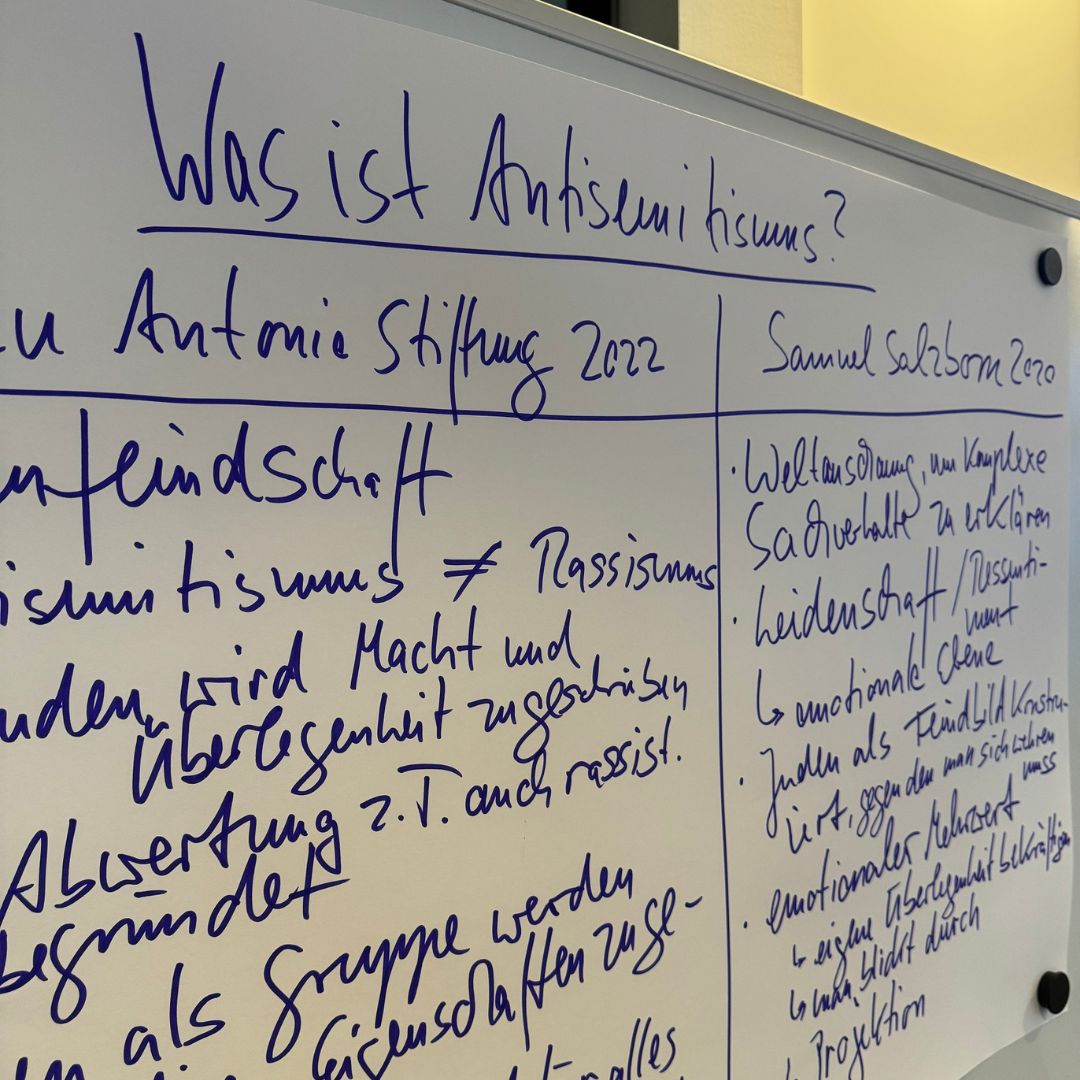 Was ist Antisemitismus?
u Antonio Stiftung 2022
nfeindschaft
isemitismus ≠ Rassismus
uden wird Macht und
Überlegenheit zugeschrieben
Abwertung z.T. auch rassist.
begründet
als Gruppe werden
Eigenschaften zuge-
alles
Samuel Salzborn 2020
· Weltanschauung, um komplexe
Sachverhalte zu erklären
· Leidenschaft / Ressenti-
ment
↳ emotionale Ebene
· Juden als Feindbild konstru-
iert, gegen den man sich wehren
muss
· emotionaler Mehrwert
↳ eigene Überlegenheit bekräftigen
↳ man blickt durch
↳ Projektion